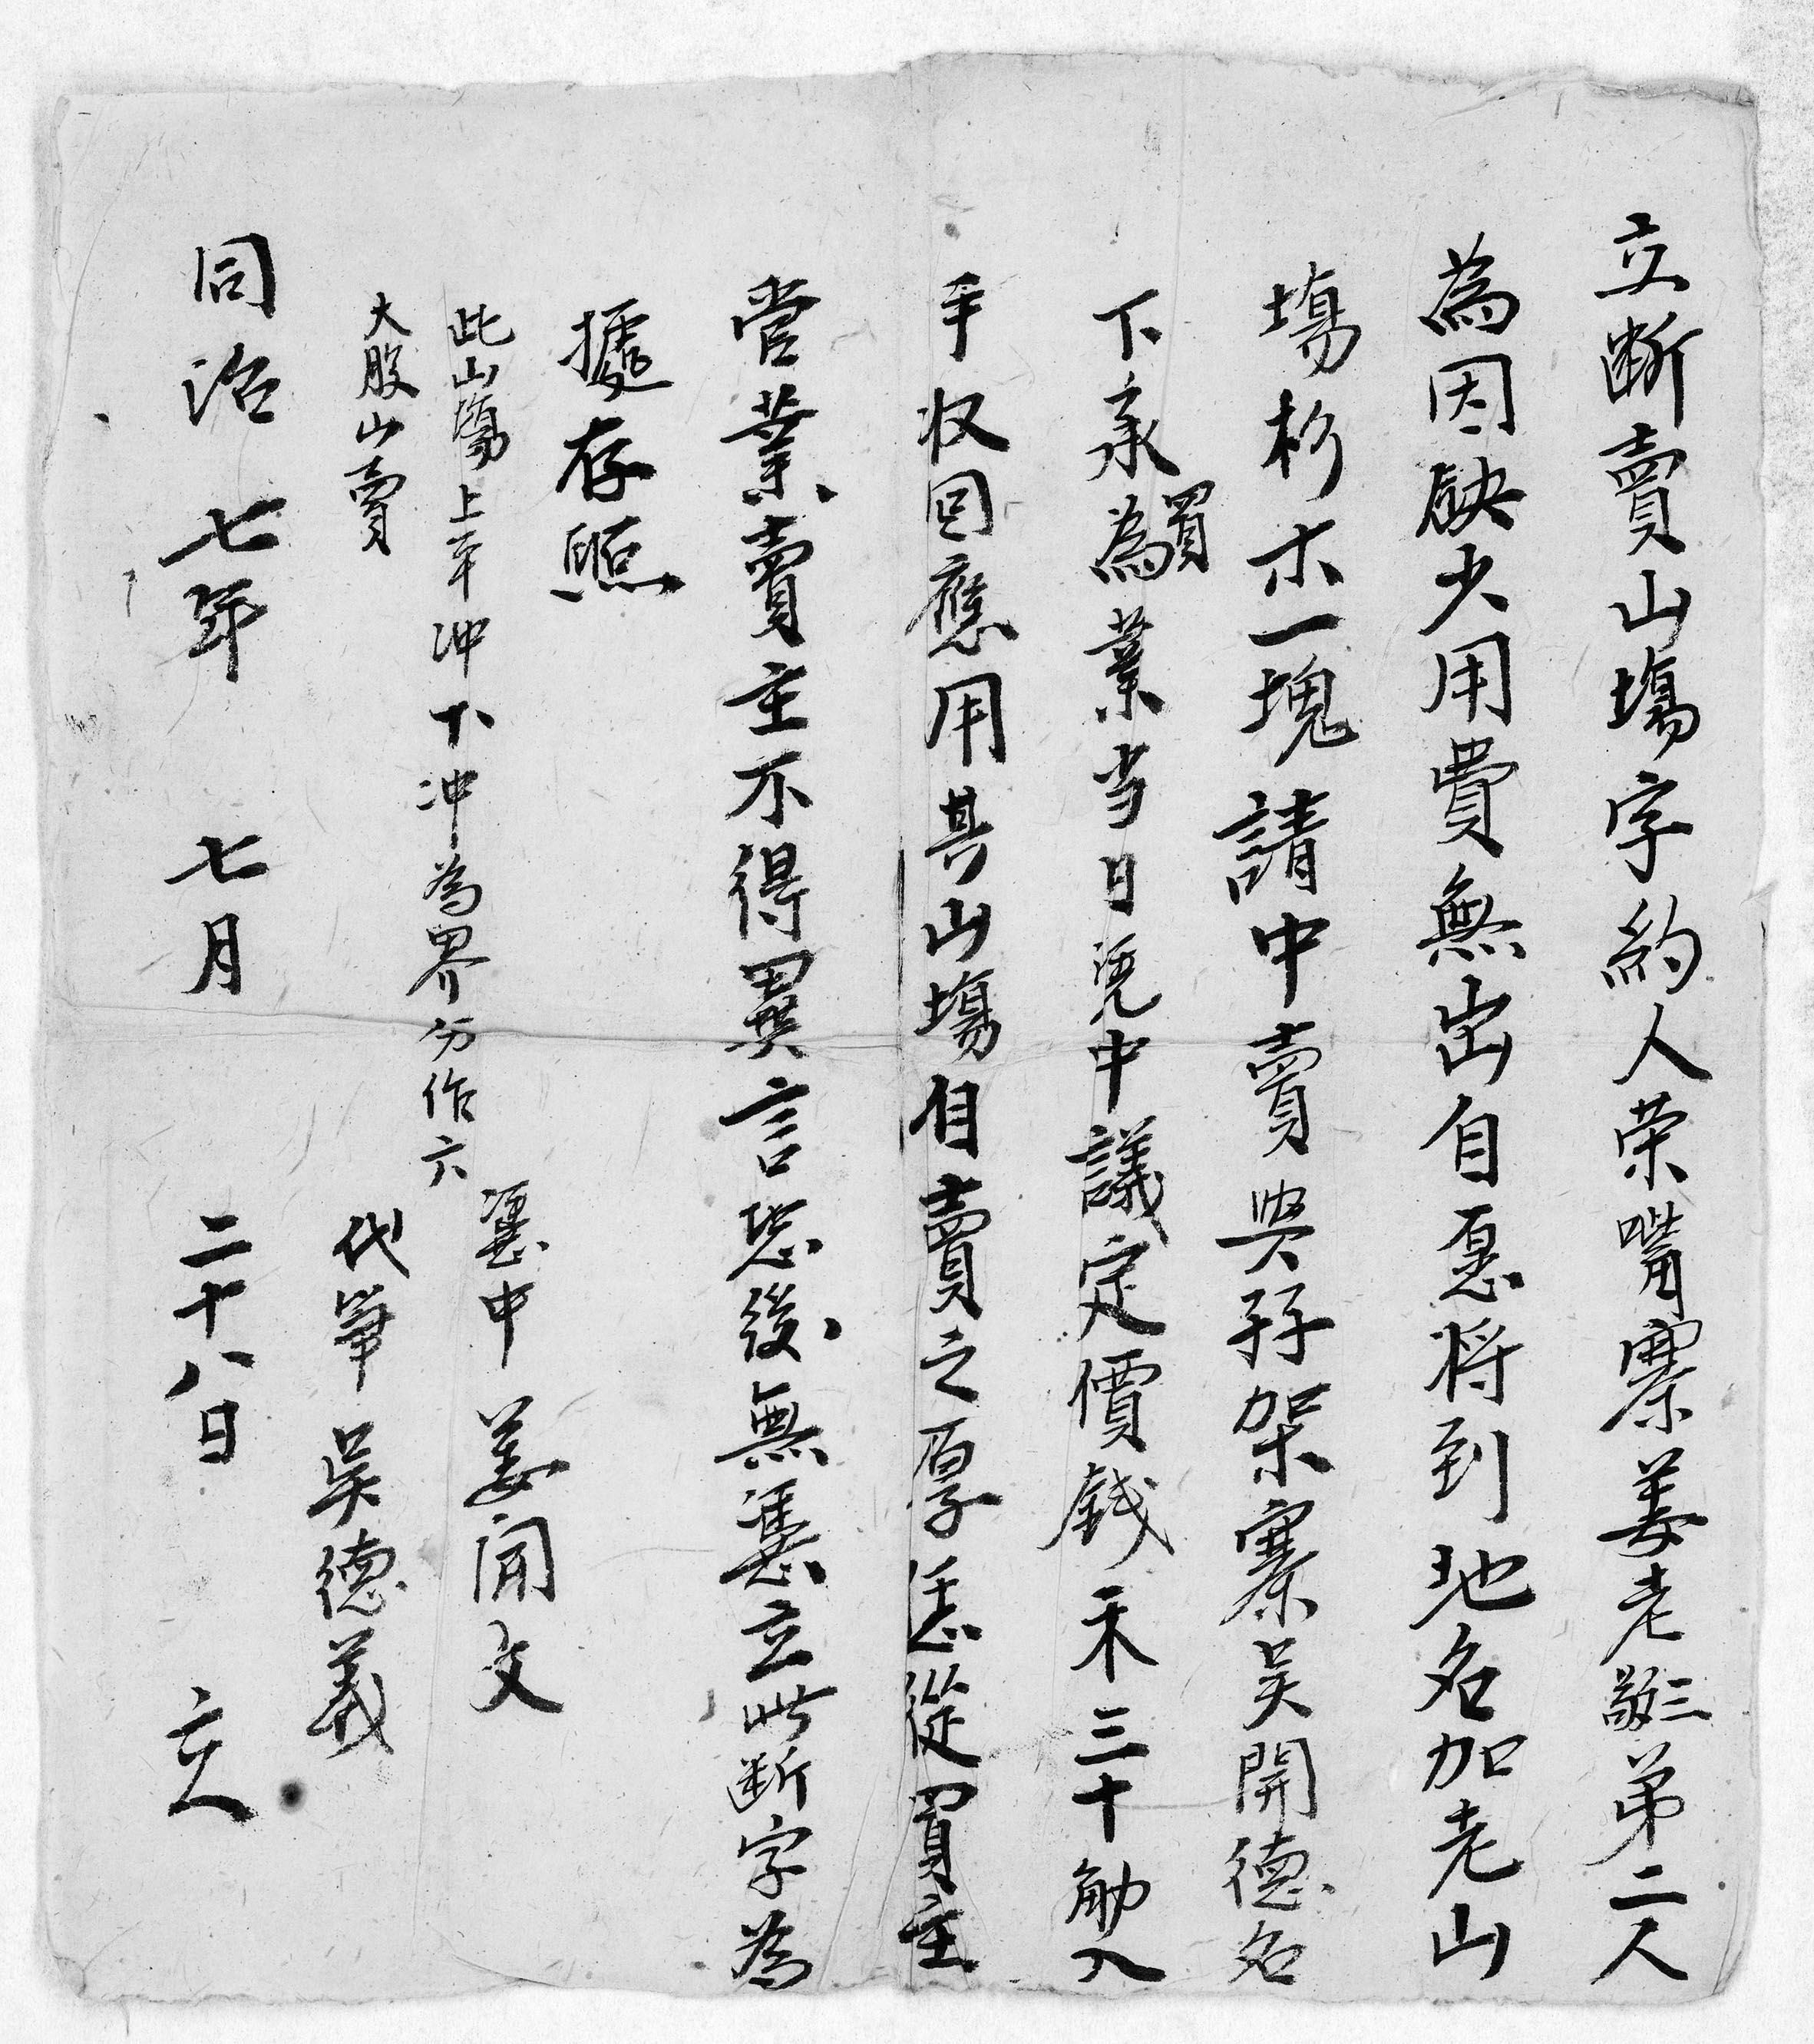 立断賣山塲字約人荣嘴寨姜老三敬弟二人
為因缺少用費無出自愿将到地名加老山
塲杉木一塊請中賣與孖架寨吴開德名
下承買為業当日凴中議定價銭禾三十觔入
手收回應用其山塲自賣之厚恁從買主
管業賣主不得異言恐後無憑立此断字為
據存照
此山塲上平冲下冲為界分作六
大股山賣
憑中 姜開文
代筆 吴德義
同治七年 七月 二十八日 立人